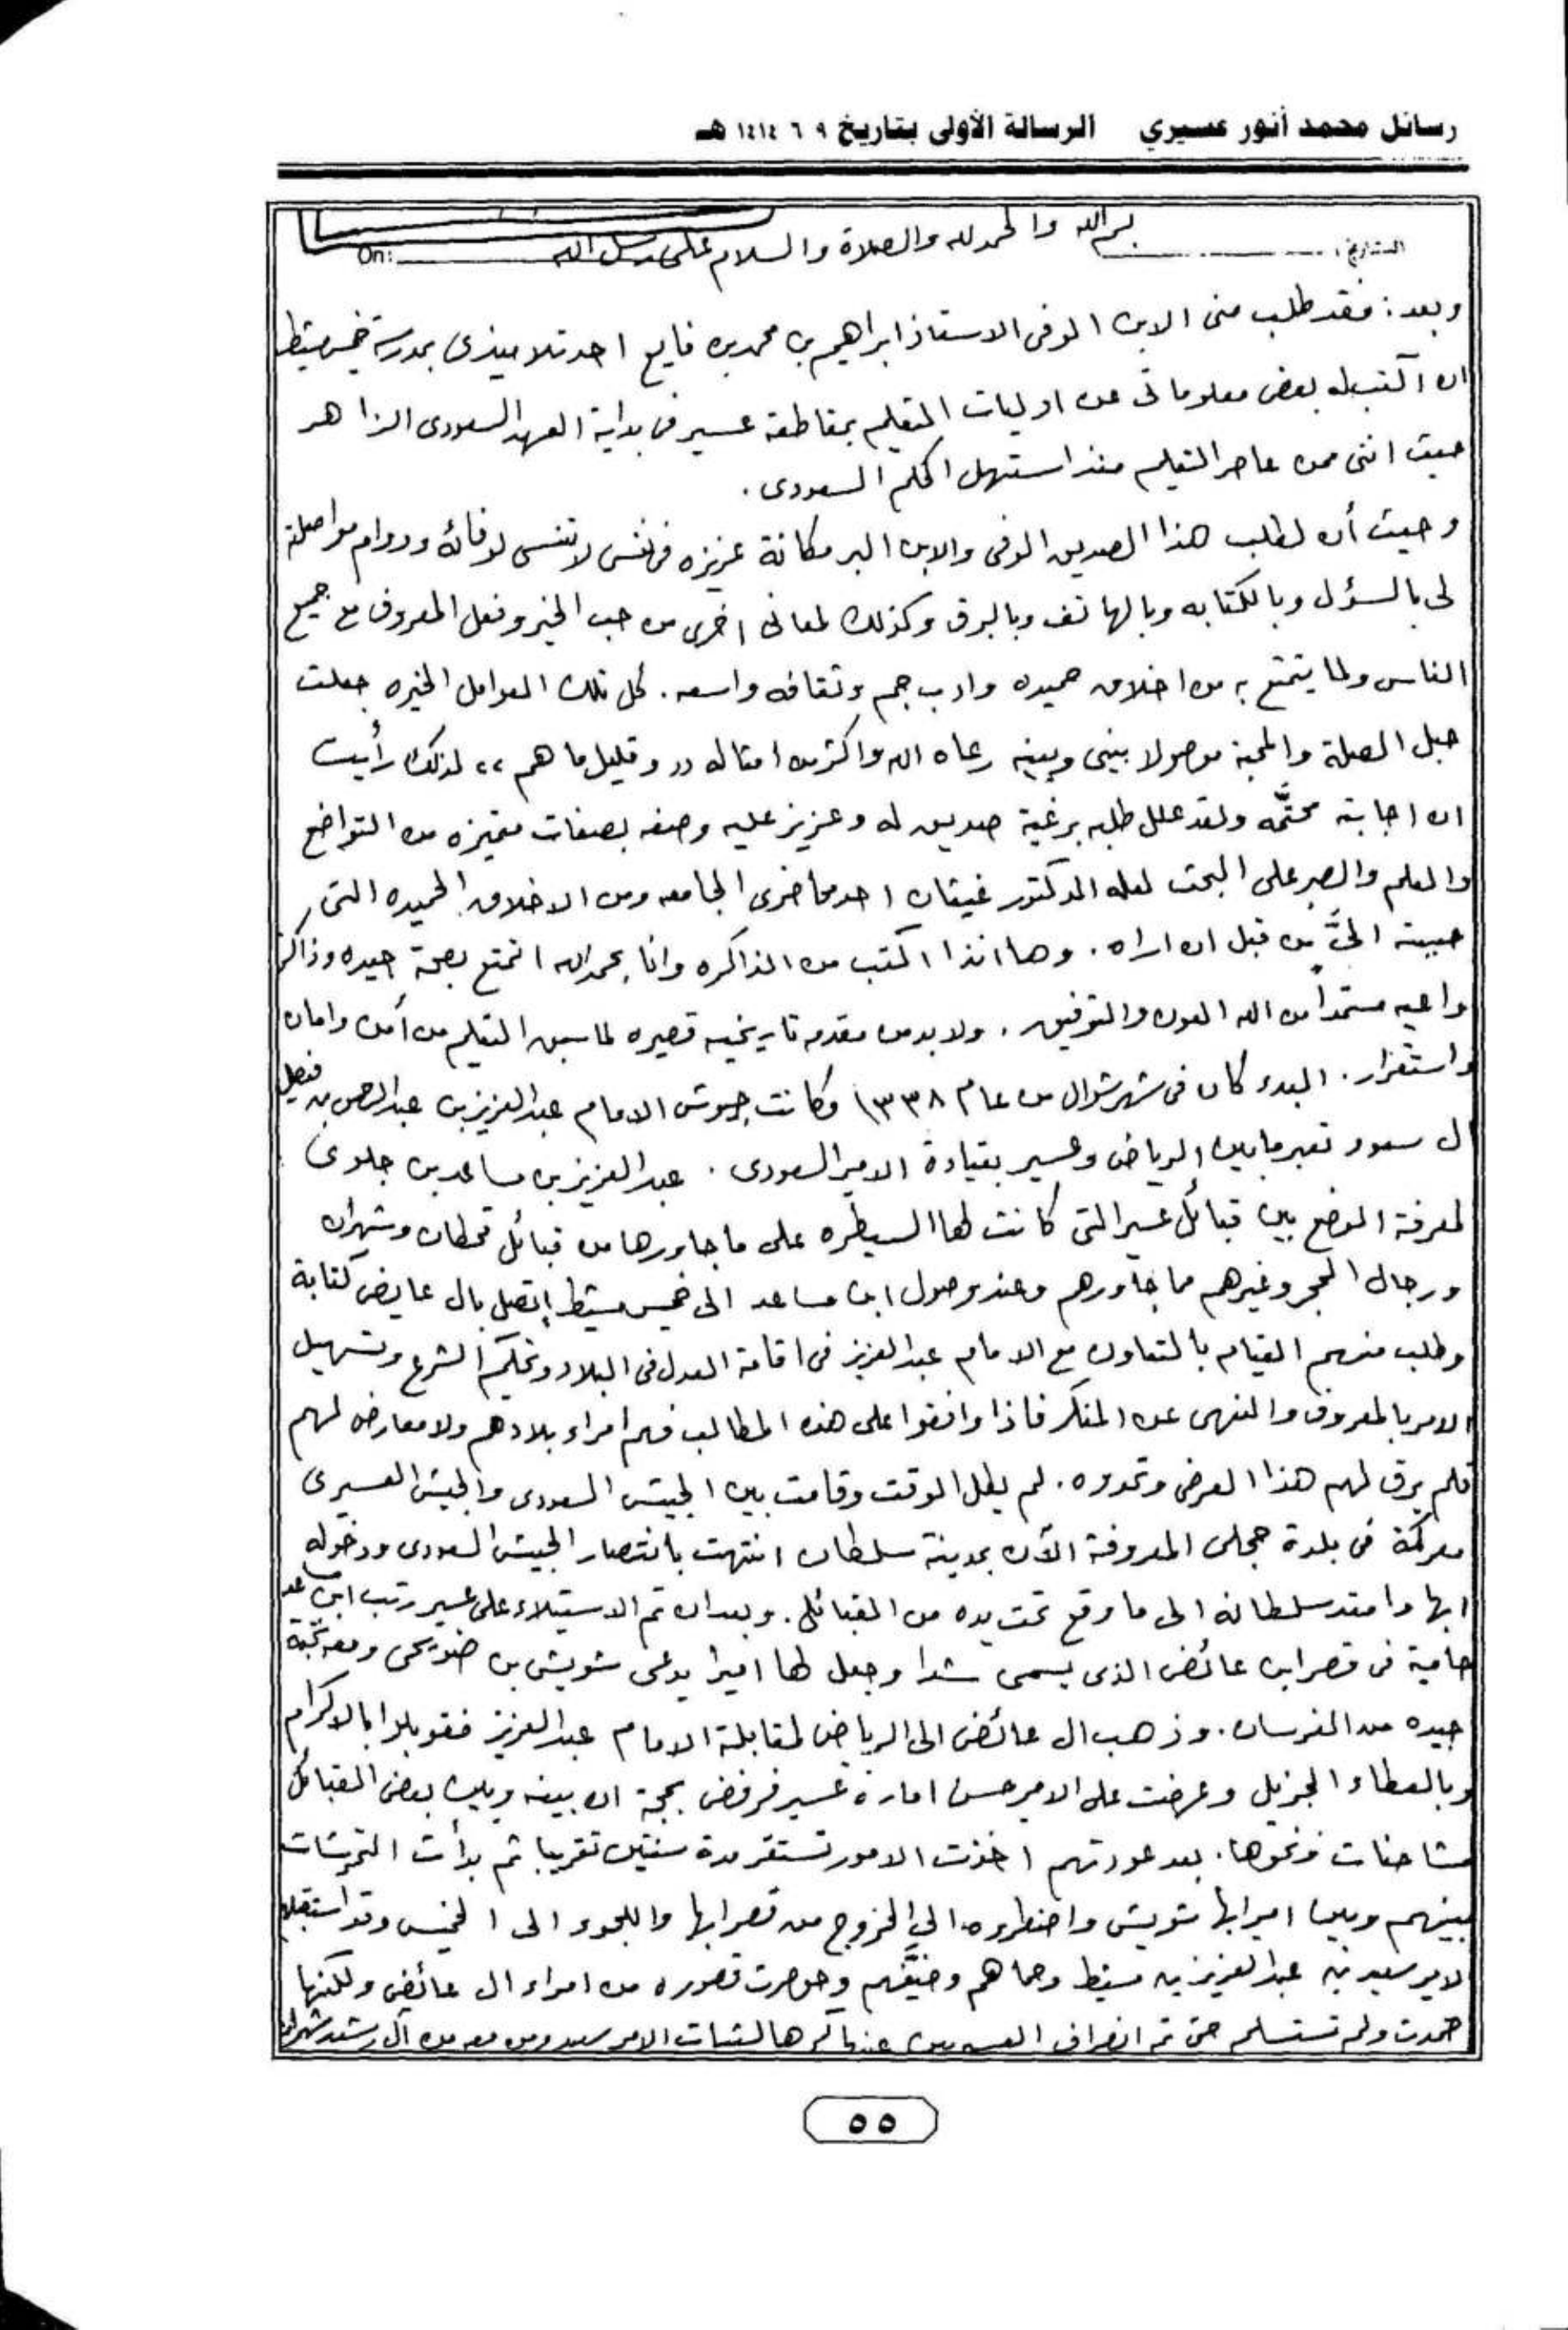 رسائل محمد أنور عسيري الرسالة الأولى بتاريخ ٩ ٦ ١٤١٤ هـ
التاريخ: بسم الله والحمد لله والصلاة والسلام على رسول الله On:
وبعد: فقد طلب منى الابن الوفى الاستاذ ابراهيم بن محمد بن فايع احد تلاميذى بمدرسة خميس مشيط
ان اكتب له بعض معلوماتى عن اوليات التعليم بمقاطعة عسير فى بداية العهد السعودى الزاهر
حيث اننى ممن عاصر التعليم منذ استهل الحكم السعودى.
وحيث أن لطلب هذا الصديق الوفى والابن البر مكانة عزيزه فى نفسى لا تنسى لوفائه ودوام مواصلته
لى بالسؤل وبالكتابه وبالهاتف وبالبرق وكذلك لمعانى اخرى من حب الخير وفعل المعروف مع جميع
الناس ولما يتمتع به من اخلاق حميده وادب جم وثقافه واسعه. كل تلك العوامل الخيره جعلت
حبل الصلة والمحبة موصولا بينى وبينه رعاه الله واكثر من امثاله ,, وقليل ما هم ,, لذلك رأيت
ان اجابته محتَّمه ولقد علل طلبه برغبة صديق له وعزيز عليه وصفه بصفات متميزه من التواضع
والعلم والصبر على البحث لعله الدكتور غيثان احد محاضرى الجامعه ومن الاخلاق الحميده التى
حببته اليَّ من قبل ان اراه. وها انذا اكتب من الذاكره وانا بحمد الله اتمتع بصحة جيده وذاكرة
واعيه مستمداً من الله العون والتوفيق. ولا بد من مقدمه تاريخيه قصيره لما سبق التعليم من أمن وامان
واستقرار. البدء كان فى شهر شوال من عام ١٣٣٨ وكانت جيوش الامام عبد العزيز بن عبد الرحمن بن فيصل
ال سعود تعبر ما بين الرياض وعسير بقيادة الامير السعودى. عبد العزيز بن مساعد بن جلوى
لمعرفة الوضع بين قبائل عسير التى كانت لها السيطره على ما جاورها من قبائل قحطان وشهران
ورجال الحجر وغيرهم مما جاورهم وعند وصول ابن مساعد الى خميس مشيط إتصل بال عايض كتابة
وطلب منهم القيام بالتعاون مع الامام عبد العزيز فى اقامة العدل فى البلاد وتحكيم الشرع وتسهيل
الامر بالمعروف والنهى عن المنكر فاذا وافقوا على هذه المطالب فهم امراء بلادهم ولا معارض لهم
فلم يرق لهم هذا العرض وتمردوه. لم يطل الوقت وقامت بين الجيش السعودى والجيش العسيرى
معركة فى بلدة حجلى المعروفة الآن بمدينة سلطان انتهت بانتصار الجيش السعودى ودخوله
ابها وامتد سلطانه الى ما وقع تحت يده من القبائل. وبعد ان تم الاستيلاء على عسير رتب ابن مساعد
حامية فى قصر ابن عائض الذى يسمى شدا وجعل لها اميرا يدعى شويش بن ضويحى ومعه نخبة
جيده من الفرسان. وذهب ال عائض الى الرياض لمقابلة الامام عبد العزيز فقوبلوا بالاكرام
وبالعطاء الجزيل وعرضت على الامير حسن امارة عسير فرفض بحجة ان بينه وبين بعض القبائل
مشاحنات ونحوها. بعد عودتهم اخذت الامور تستقر مدة سنتين تقريبا ثم بدأت التحرشات
بينهم وبين امير ابها شويش واضطروه الى الخروج من قصر ابها واللجوء الى الخميس وقد استقبله
لامير سعيد بن عبد العزيز بن مشيط وحماهم وضيَّفهم وحوصرت قصوره من امراء ال عائض ولكنها
صمدت ولم تستسلم حتى تم انصراف العسيريين عنها كرها لثبات الامير سعيد ومن معه من آل رشيد شهران
٥٥